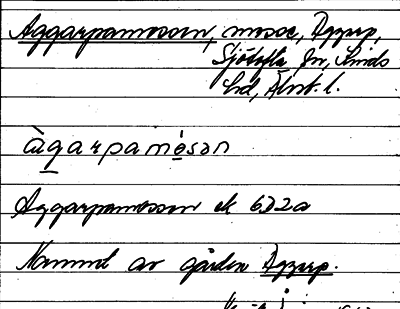 Aggarpamossen, mosse, Aggarp,
Sjötofta sn, Kinds
hd, Älvsb. l.
àgarpamósən
Aggarpamossen ek 6D2a
Namned av gården Aggarp.